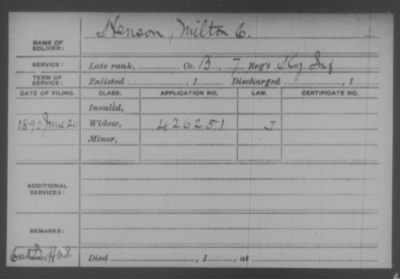 NAME OF SOLDIER: Henson, Milton C.
SERVICE: Late rank, Co. B. 7 Reg't Ky Inf
TERM OF SERVICE: Enlisted , 1 Discharged , 1
DATE OF FILING. CLASS. APPLICATION NO. LAW. CERTIFICATE NO.
Invalid,
1890 June 20 Widow, 426251 J
Minor,
ADDITIONAL SERVICES:
REMARKS:
Died , 1 , at